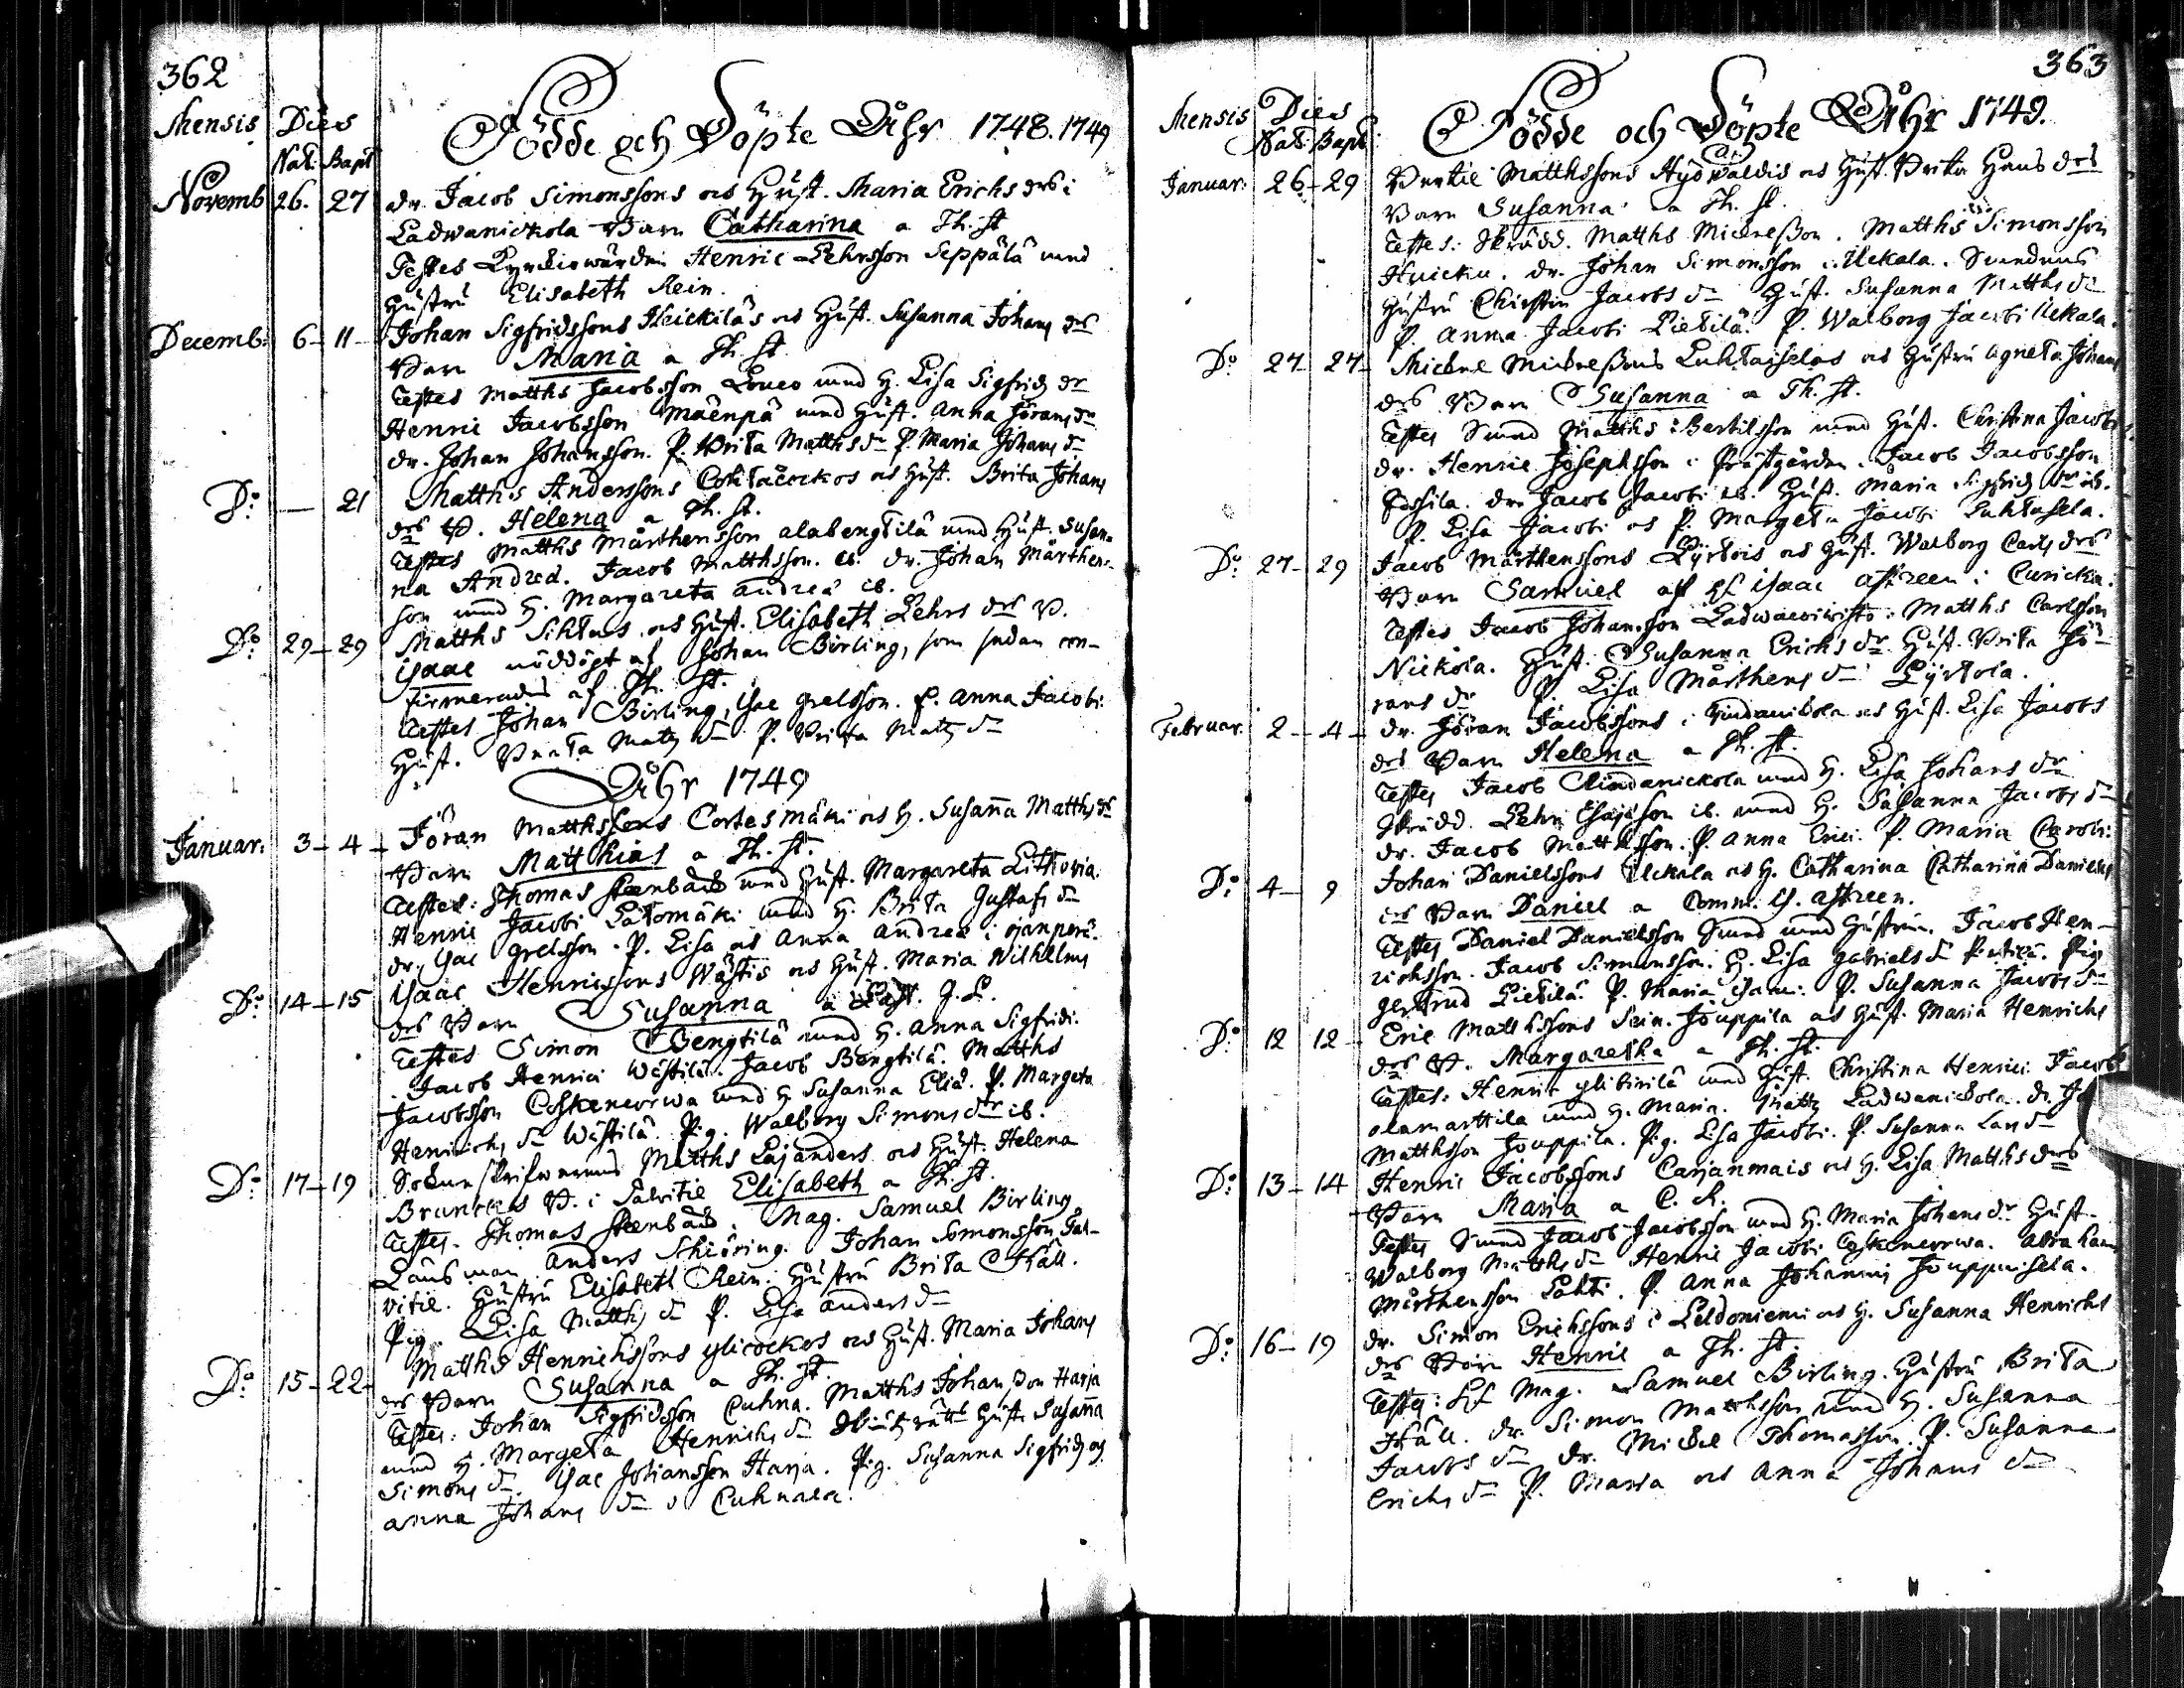 362
Mensis Dies
Nat. Bapt
Födde och Döpte Åhr 1748. 1749
Novemb 26. 27 dr. Jacob Simonssons os Hust. Maria Erichs drs i
Ladwanickola Barn Catharina a Th. St
Testes Kyrckiowärden Henric Lehrsson Seppälä med
Hustru Elisabeth Rein.
Decemb: 6-11- Johan Sigfridssons Heickiläs os Hust. Susanna Johans drs
Barn Maria a Th. St
Testes Matths Jacobsson Louco med H. Lisa Sigfrids dr
Henric Jacobsson Mäenpä med Hust. Anna Jörans dr
dr. Johan Johansson. P. Brita Matths dr P. Maria Johans dr
Do: — 21 Matths Anderssons Cohtacockos os Hust. Brita Johans
drs B. Helena a Th. St.
Testes Matths Mårthensson alabengtilä med Hust. Susan-
na Andreæ. Jacob Matthsson. ib. dr. Johan Mårthen-
son med H. Margareta Andreæ ib.
Do: 29-29 Matths Sihtus os Hust. Elisabeth Lehrs drs B.
Isaac nöddöpt af Johan Birling, som sedan con-
firmerades af Th. St.
Testes Johan Birling, Isac Grelsson. P. Anna Jacobi.
Hust. Brita Matts dr P. Brita Matts dr
Åhr 1749
Januar: 3-4- Jöran Matthssons Cortesmäki os H. Susanna Matths drs
Barn Matthias a Th. St.
Testes: Thomas Stenbäck med Hust. Margareta Lithovia.
Henric Jacobi Latomäki med H. Brita Gustafs dr
dr. Isac Grelsson. P. Lisa os Anna Andreæ i ojanperä.
Do: 14-15 Isaac Henrissons Wästis os Hust. Maria Wilhelms
drs Barn Susanna a Past. G. L.
Testes Simon Bengtilä med H. Anna Sigfridi.
Jacob Henrici Wästilä. Jacob Bengtilä. Matths
Jacobsson Coskencorwa med H Susanna Eliæ. P. Margeta
Henrichs dr Wästilä. Pig. Walborg Simons dr ib.
Do: 17-19 Sockneskrifwarens Matths Lajanders os Hust. Helena
Brunckers B. i Salvitie Elisabeth a Th. St.
Testes. Thomas Stenbäck. Mag. Samuel Birling
Länsman Anders Schiöring. Johan Somonsson Sal-
vitie. Hustru Elisabeth Rein. Hustru Brita Häll.
Pig. Lisa Matths dr P. Lisa Anders dr
Do: 15-22- Matths Henrichssons ylicockos os Hust. Maria Johans
drs Barn Susanna a Th. St.
Testes: Johan Sigfridsson Cuhna. Matths Johansson Harja
med H. Margeta Henrichs dr Hust. Susanna
Simons dr. Isac Johansson Harja. Pig. Susanna Sigfrids os
Anna Johans dr Cuhnala.
363
Mensis Dies
Nat. Bapt
Födde och Döpte Åhr 1749.
Januar: 26-29 Bertil Matthssons Hyöwaldis os Hust. Brita Hans drs
Barn Susanna a Th. St.
Testes: Skrädd. Matths Mickelsson. Matths Simonsson
Huicku. dr. Johan Simonsson i Uckala. Smedens
Hustru Chirstin Jacobs dr Hust. Susanna Matths dr
P. Anna Jacobi Pietilä. P. Walborg Jacobi Uckala.
Do: 27-27- Mickel Mickelssons Luhtaiselas os Hustru Agneta Johans
drs Barn Susanna a Th. St.
Testes Smed Matths Bertilsson med Hust. Christina Jacobi
dr. Henric Josephsson i Prästgården. Jacob Jacobsson
dr. Jacob Jacobi ib. Hust. Maria Sigfrids dr ib.
P. Lisa Jacobi os P. Margeta Jacobi Luhtasela.
Do: 27-29 Jacob Mårthenssons Kyrkois os Hust. Walborg Carls drs
Barn Samuel af Hl Isaac Astreen i Curicka.
Testes Jacob Johansson Ladwawiristo. Matths Carlsson
Nickola. Hust. Susanna Erichs dr. Hust. Brita Jö-
rans dr P. Lisa Mårthens dr Kyrkola.
Februar. 2-4- dr. Jöran Jacobssons i Hindanickola os Hust. Lisa Jacobs
drs Barn Helena a Th. St.
Testes Jacob Hindanickola med H. Lisa Johans dr
Skrädd. Lehr Esajson ib. med H. Susanna Jacobs dr
dr. Jacob Matthsson. P. Anna Erici. P. Maria Caroli.
Do: 4-9 Johan Danielssons Uckala os H. Catharina Catharina Daniels
drs Barn Daniel a Comm. Is. Astreen.
Testes Daniel Danielsson Smed med Hustrun. Jacob Hen-
richsson. Jacob Simonsson. H. Lisa Gabriels dr Pietilä. Pig
Gertrud Pietilä. P. Maria Isaci. P. Susanna Jacobs dr
Do: 12 12- Eric Matthssons Sein. Jouppila os Hust. Maria Henrichs
drs B. Margaretha a Th. St.
Testes: Henric ylitirilä med Hust. Christina Henrici. Jacob
alamarttila med H. Maria. Matts Ladwanickola. dr. Jo
Matthsson Jouppila. Pig. Lisa Jacobi. P. Susanna Lars dr
Do: 13-14 Henric Jacobssons Carjanmais os H. Lisa Matths drs
Barn Maria a C. R.
Testes Smed Jacob Jacobsson med H. Maria Johans dr Hust.
Walborg Matths dr Henric Jacobi Coskencorwa. Abraham
Mårthensson Lahti. P. Anna Johannis Jouppuisela.
Do: 16-19 dr. Simon Erichssons i Peldoniemi os H. Susanna Henrichs
drs Barn Henric a Th. St.
Testes: Hl Mag. Samuel Birling. Hustru Brita
Häll. dr. Simon Matthsson med H. Susanna
Jacobs dr dr. Mickel Thomasson. P. Susanna
Erichs dr P. Maria os Anna Johans dr